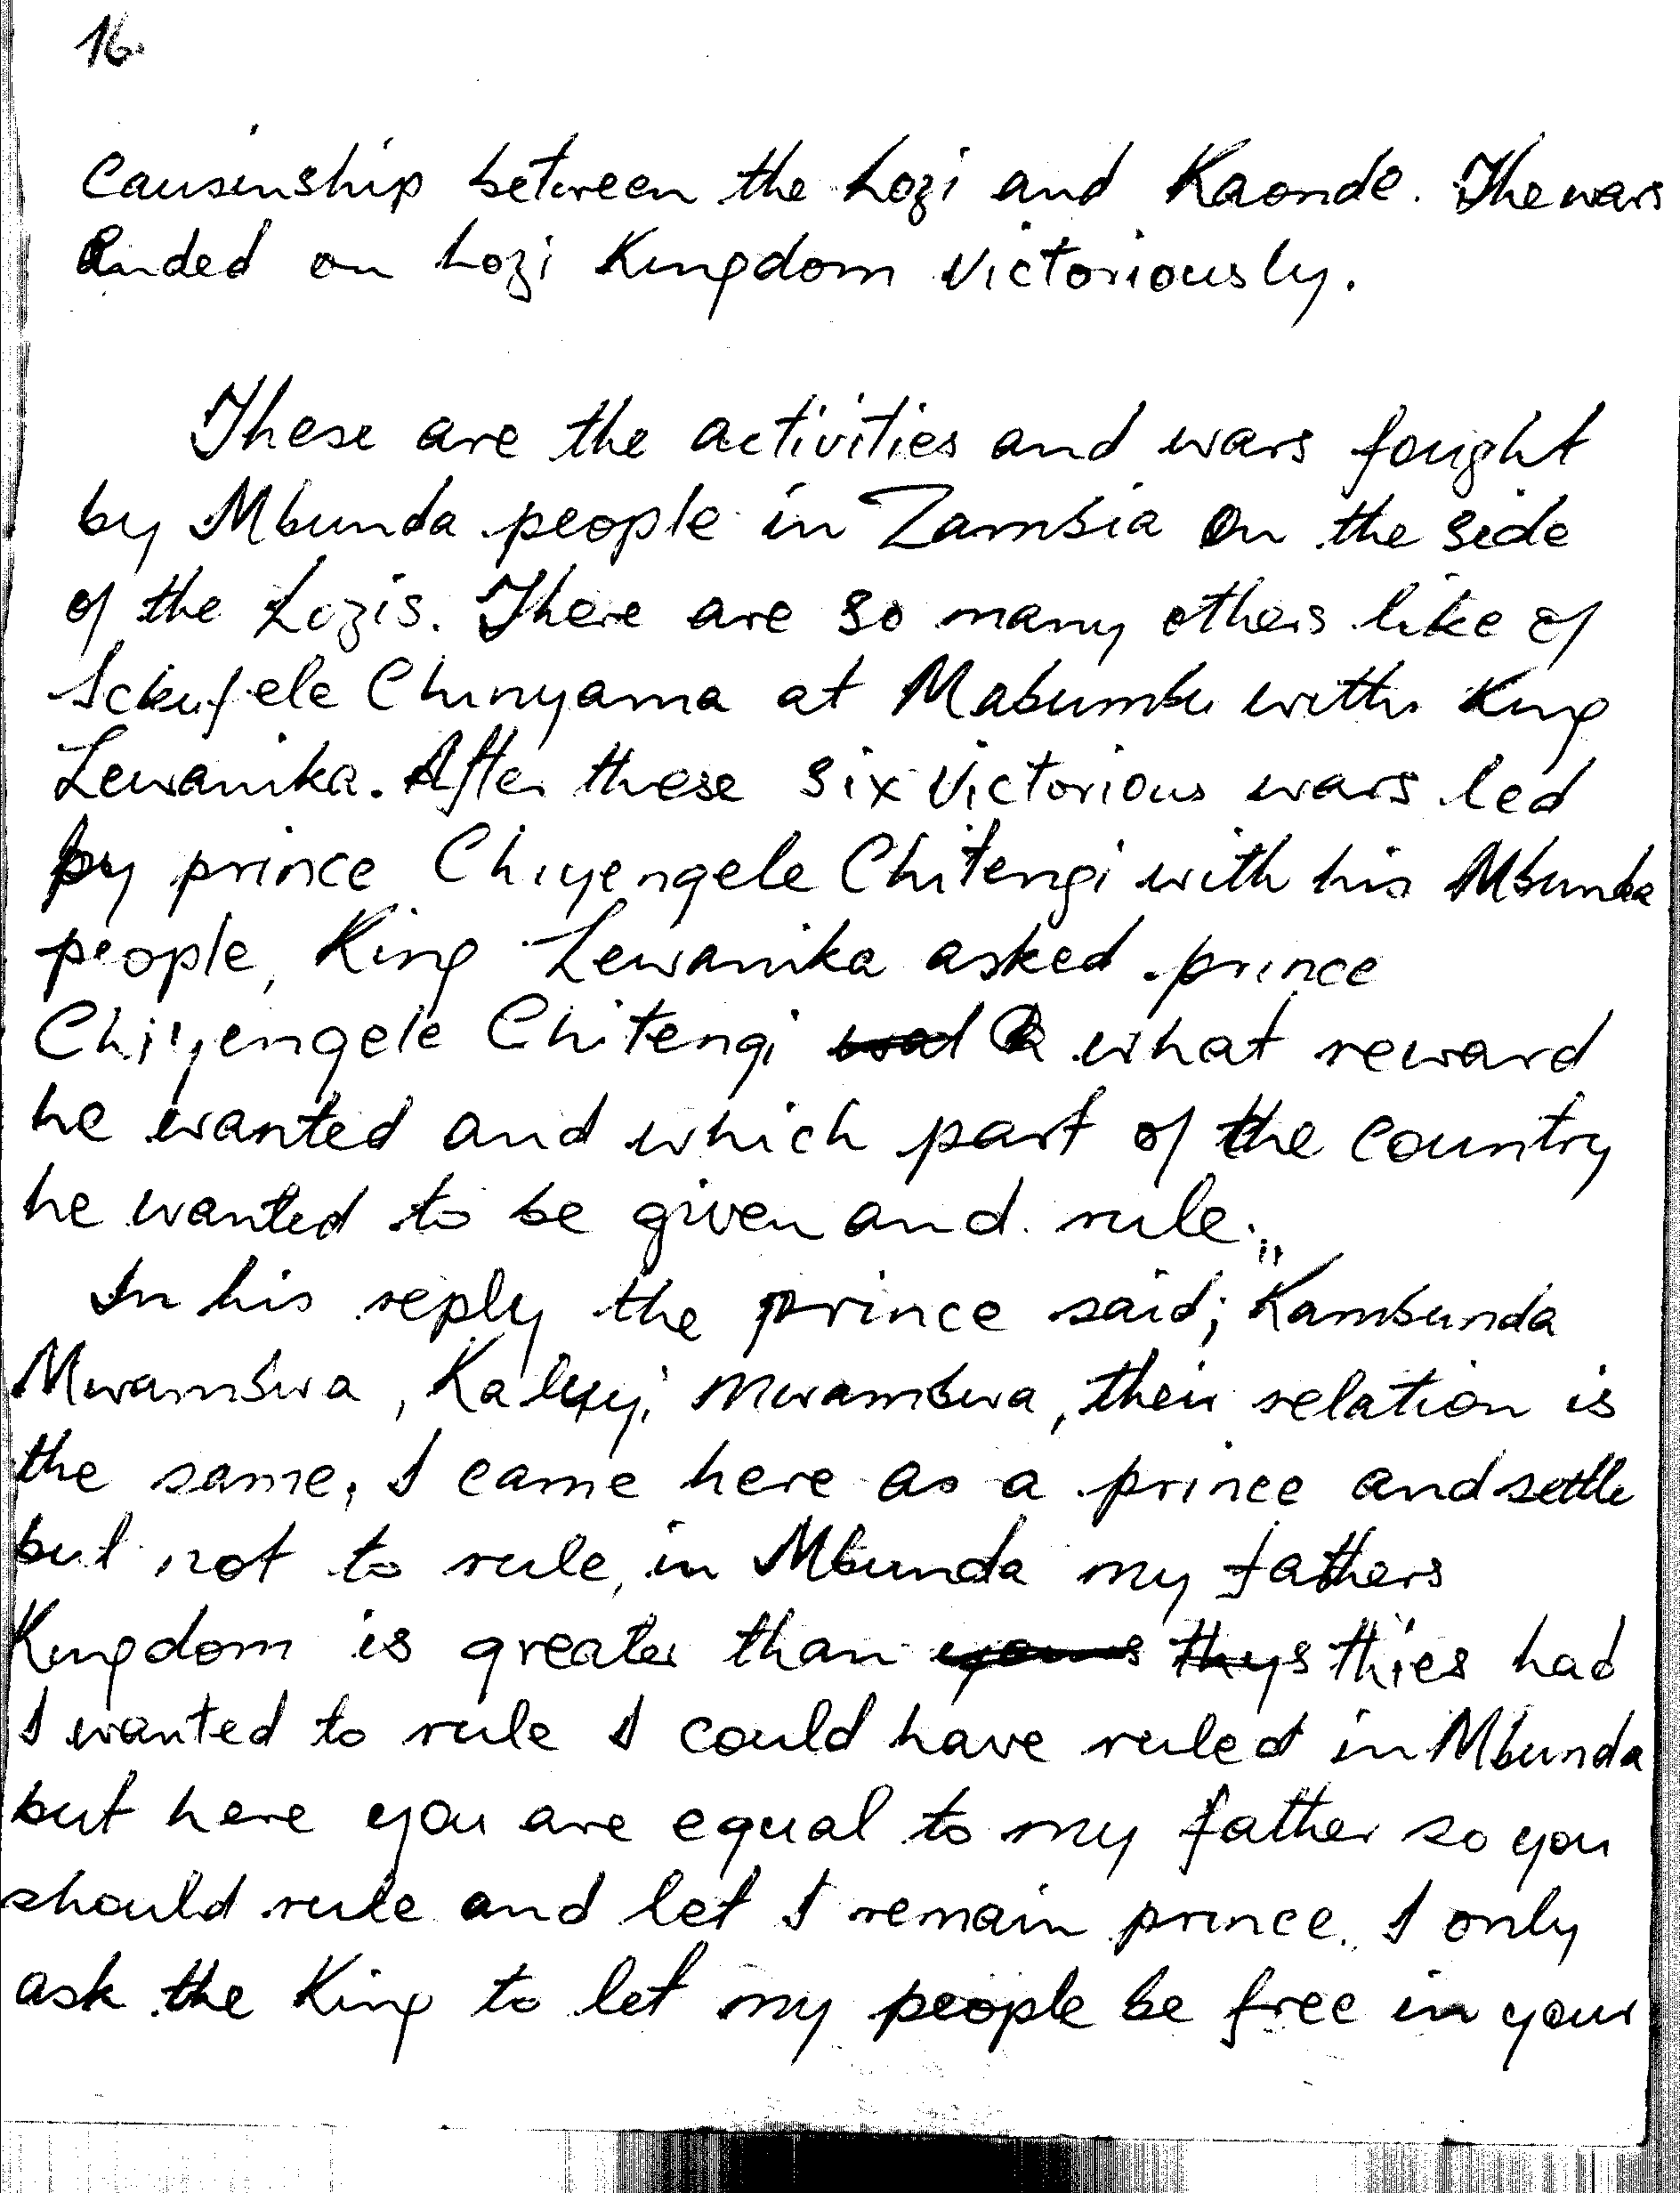 16.
Causinship between the Lozi and Kaonde. The wars
Ended on Lozi Kingdom Victoriously.
These are the activities and wars fought
by Mbunda people in Zambia On the side
of the Lozis. There are so many others like of
Sekufele Chinyama at Mabumbu with King
Lewanika. After these six Victorious wars led
by prince Chiyengele Chitengi with his Mbunda
people, King Lewanika asked prince
Chiyengele Chitengi what reward
he wanted and which part of the Country
he wanted to be given and rule.
In his reply the prince said; "Kambunda
Mwambwa, Kaluyi Mwambwa, their relation is
the same, I came here as a prince and settle
but not to rule, in Mbunda my fathers
Kingdom is greater than thies had
I wanted to rule I could have ruled in Mbunda
but here you are equal to my father so you
should rule and let I remain prince. I only
ask the King to let my people be free in your